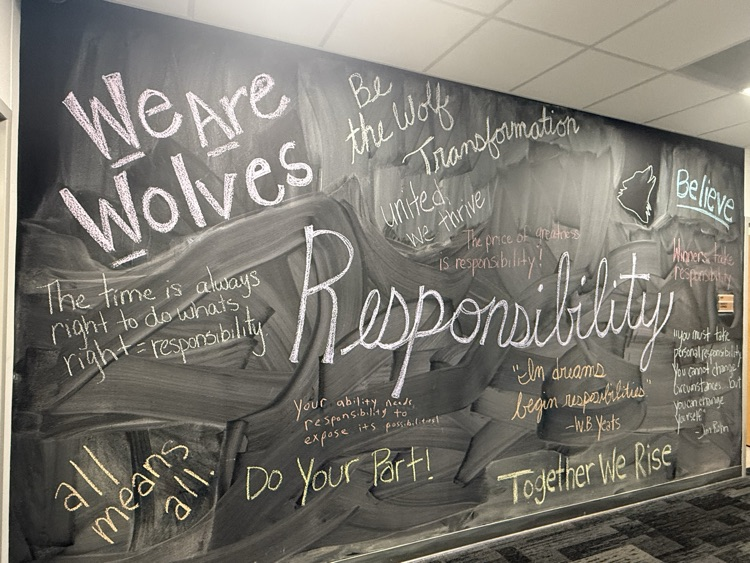 We Are
Wolves
Be
the Wolf
Transformation
united,
we thrive
Believe
The price of greatness
is responsibility!
Winners take
responsibility
The time is always
right to do whats
right = responsibility
Responsibility
"you must take
personal responsibility
You cannot change
circumstances... but
you can change
yourself"
"In dreams
begin resposibilities"
-W.B Yeats
Your ability needs
responsibility to
expose its possibilities
all
means
all.
Do Your Part!
Together We Rise